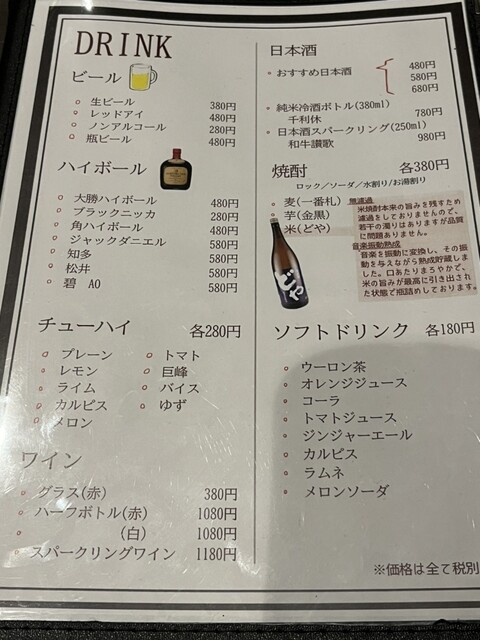 DRINK
ビール
生ビール 380円
レッドアイ 480円
ノンアルコール 280円
瓶ビール 480円
ハイボール
大勝ハイボール 480円
ブラックニッカ 280円
角ハイボール 480円
ジャックダニエル 580円
知多 580円
松井 580円
碧 AO 580円
チューハイ 各280円
プレーン
レモン
ライム
カルピス
メロン
トマト
巨峰
バイス
ゆず
ワイン
グラス(赤) 380円
ハーフボトル(赤) 1080円
(白) 1080円
スパークリングワイン 1180円
日本酒
おすすめ日本酒 480円
580円
680円
純米冷酒ボトル(380ml)
千利休 780円
日本酒スパークリング(250ml)
和牛讃歌 980円
焼酎 各380円
ロック/ソーダ/水割り/お湯割り
麦(一番札)
芋(金黒)
米(どや)
どや
無濾過
米焼酎本来の旨みを残すため
濾過をしておりませんので、
若干の濁りはありますが品質
に問題ありません。
音楽振動熟成
音楽を振動に変換し、その振
動を与えながら熟成貯蔵しま
した。口あたりまろやかで、
米の旨みが最高に引き出され
た状態で瓶詰めしております。
ソフトドリンク 各180円
ウーロン茶
オレンジジュース
コーラ
トマトジュース
ジンジャーエール
カルピス
ラムネ
メロンソーダ
※価格は全て税別